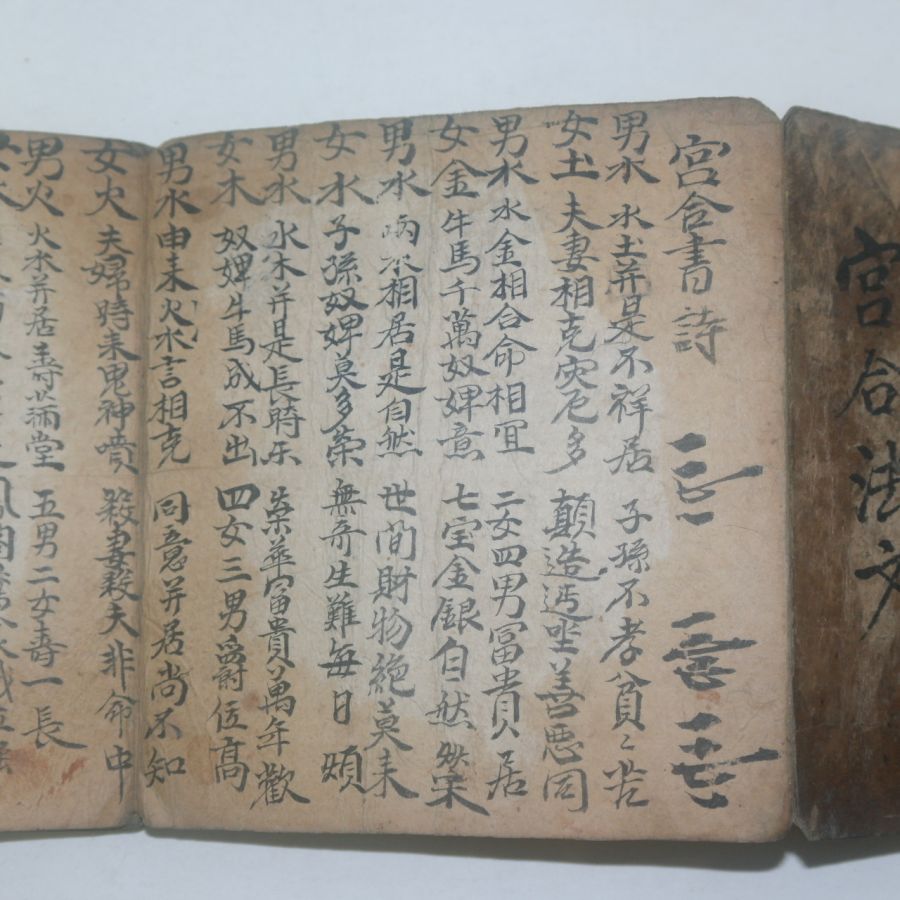 宮合法文
宮合書詩
男水 水土幷是不祥居 子孫不孝貧〻苦
女土 夫妻相克灾厄多 顛造 坐善惡同
男水 水金相合命相宜 二女四男冨貴居
女金 牛馬千萬奴婢意 七宝金銀自然
男水 両水相居是自然 世間財物絶莫来
女水 子孫奴婢莫多荣 無奇生難每日煩
男水 水木幷是長時乐 荣華冨貴萬年歡
女木 奴婢牛馬成不出 四女三男爵位高
男水 由来火水言相克 同意幷居尚不知
女火 夫婦時来鬼神噴 殺妻殺夫非命中
男火 火水幷居壽滿堂 五男二女壽一長